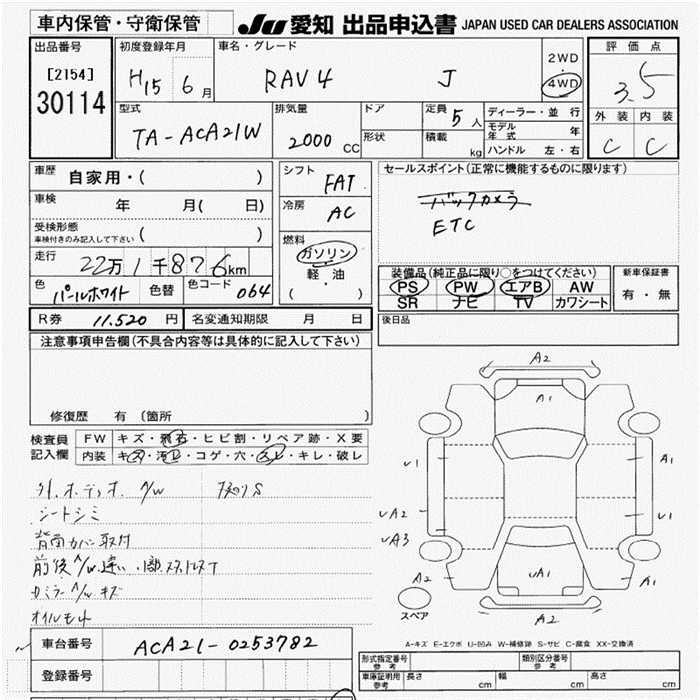 車内保管・守衛保管 JU 愛知 出品申込書 JAPAN USED CAR DEALERS ASSOCIATION
出品番号 初度登録年月 車名・グレード 評価点
[2154] H15 6月 RAV4 J 2WD・4WD 3.5
30114 外装 内装
型式 排気量 ドア 定員 5人 ディーラー・並行
TA-ACA21W 2000cc 形状 積載 kg モデル年式 年 C C
ハンドル 左・右
車歴 自家用・( ) シフト FAT セールスポイント(正常に機能するものに限ります)
車検 年 月( 日) 冷房 AC バックカメラ
受検形態 車検付きのみ記入して下さい ( ) ETC
走行 22万1千876km 燃料 ガソリン 軽油 ( )
装備品(純正品に限り○をつけてください) 新車保証書
色 パールホワイト 色替 色コード 064 PS PW エアB AW 有・無
SR ナビ TV カワシート
R券 11.520円 名変通知期限 月 日 後日品
注意事項申告欄(不具合内容等は具体的に記入して下さい)
修復歴 有 (箇所
検査員記入欄 FW キズ・飛石・ヒビ割・リペア跡・X要
内装 キズ・汚レ・コゲ・穴・スレ・キレ・破レ
外.オーディオ.A/W
シートシミ
背面カバー取付
前後A/W違い
カミラーA/Wキズ
オイルモレ
A2
A1
U1
UA2 U1
UA3
A2 UA1 A1
スペア A2
A-キズ E-エクボ U-凹み W-補修跡 S-サビ C-腐食 XX-交換済
車台番号 ACA21-0253782
登録番号
形式指定番号 参考 類別区分番号 参考
車庫証明用 参考 長さ cm 幅 cm 高さ cm